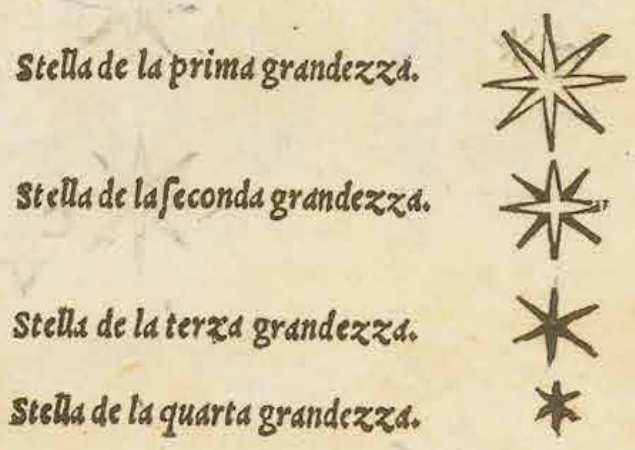 Stella de la prima grandezza.
Stella de la ſeconda grandezza.
Stella de la terza grandezza.
Stella de la quarta grandezza.